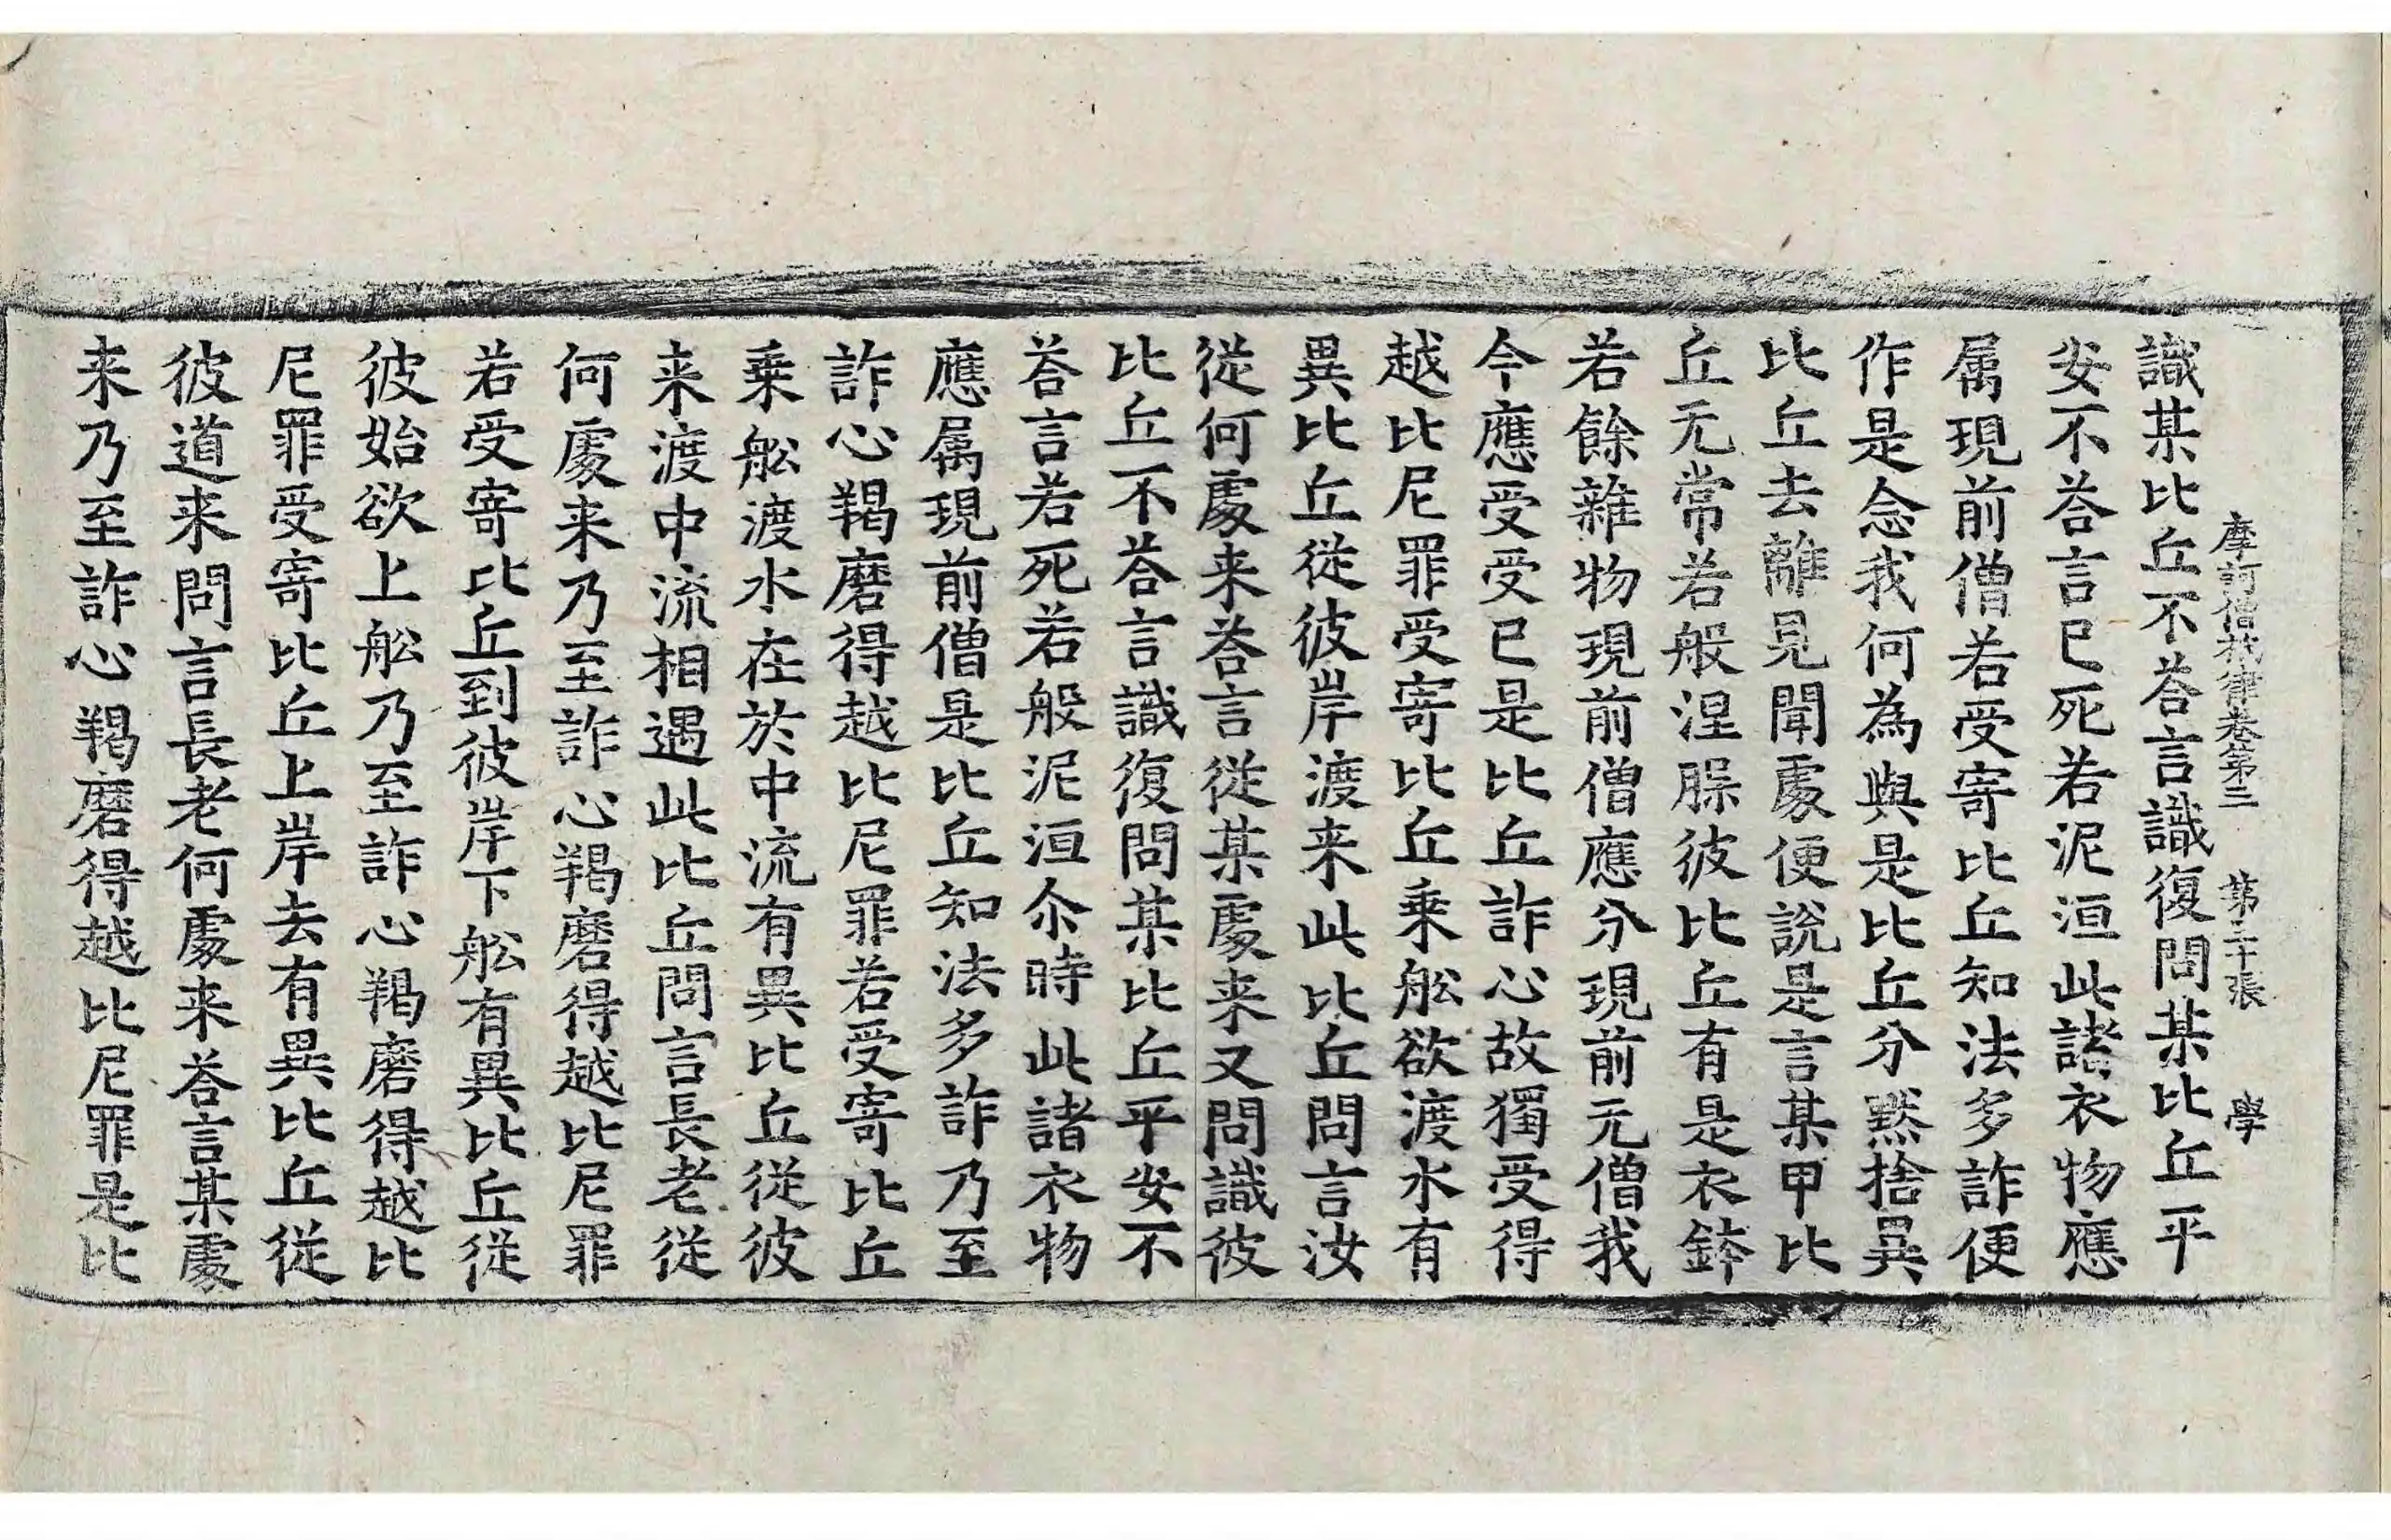 摩訶僧祇律卷第三 第二十張 學
識某比丘不荅言識復問某比丘平
安不荅言已死若泥洹此諸衣物應
属現前僧若受寄比丘知法多詐便
作是念我何為與是比丘分黙捨異
比丘去離見聞處便說是言某甲比
丘无常若般涅槃彼比丘有是衣鉢
若餘雜物現前僧應分現前无僧我
今應受受已是比丘詐心故獨受得
越比尼罪受寄比丘乗舩欲渡水有
異比丘従彼岸渡来此比丘問言汝
従何處来荅言従某處来又問識彼
比丘不荅言識復問某比丘平安不
荅言若死若般泥洹尒時此諸衣物
應属現前僧是比丘知法多詐乃至
詐心羯磨得越比尼罪若受寄比丘
乗舩渡水在於中流有異比丘従彼
来渡中流相遇此比丘問言長老従
何處来乃至詐心羯磨得越比尼罪
若受寄比丘到彼岸下舩有異比丘従
彼始欲上舩乃至詐心羯磨得越比
尼罪受寄比丘上岸去有異比丘従
彼道来問言長老何處来荅言某處
来乃至詐心羯磨得越比尼罪是比